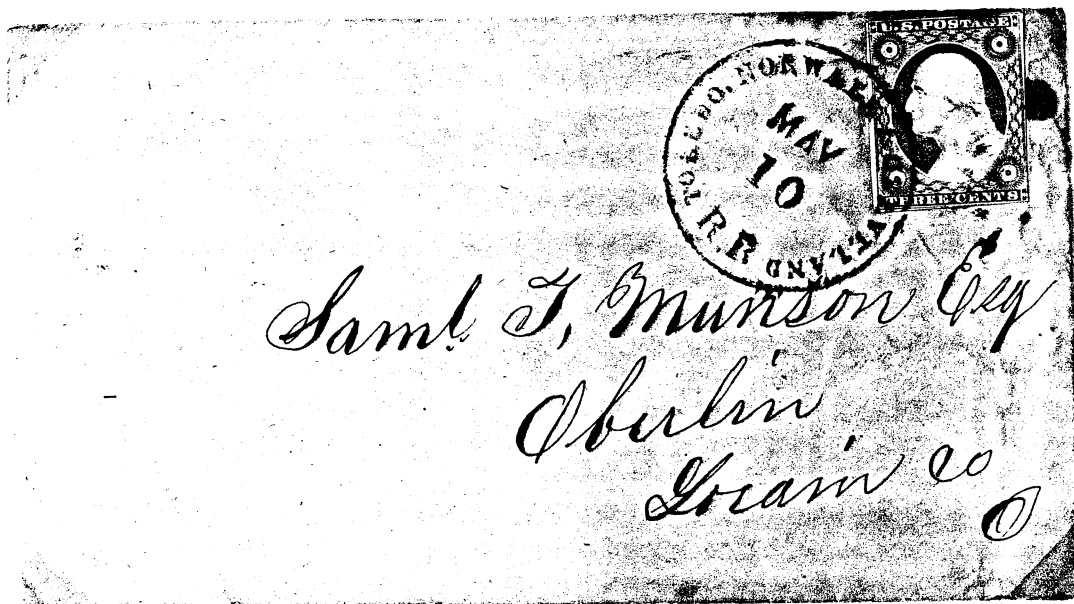 U.S. POSTAGE
THREE CENTS
TOLEDO, NORWAL
VELAND
R.R
MAY
10
Saml T, Munson Esq
Oberlin
Lorain Co
O